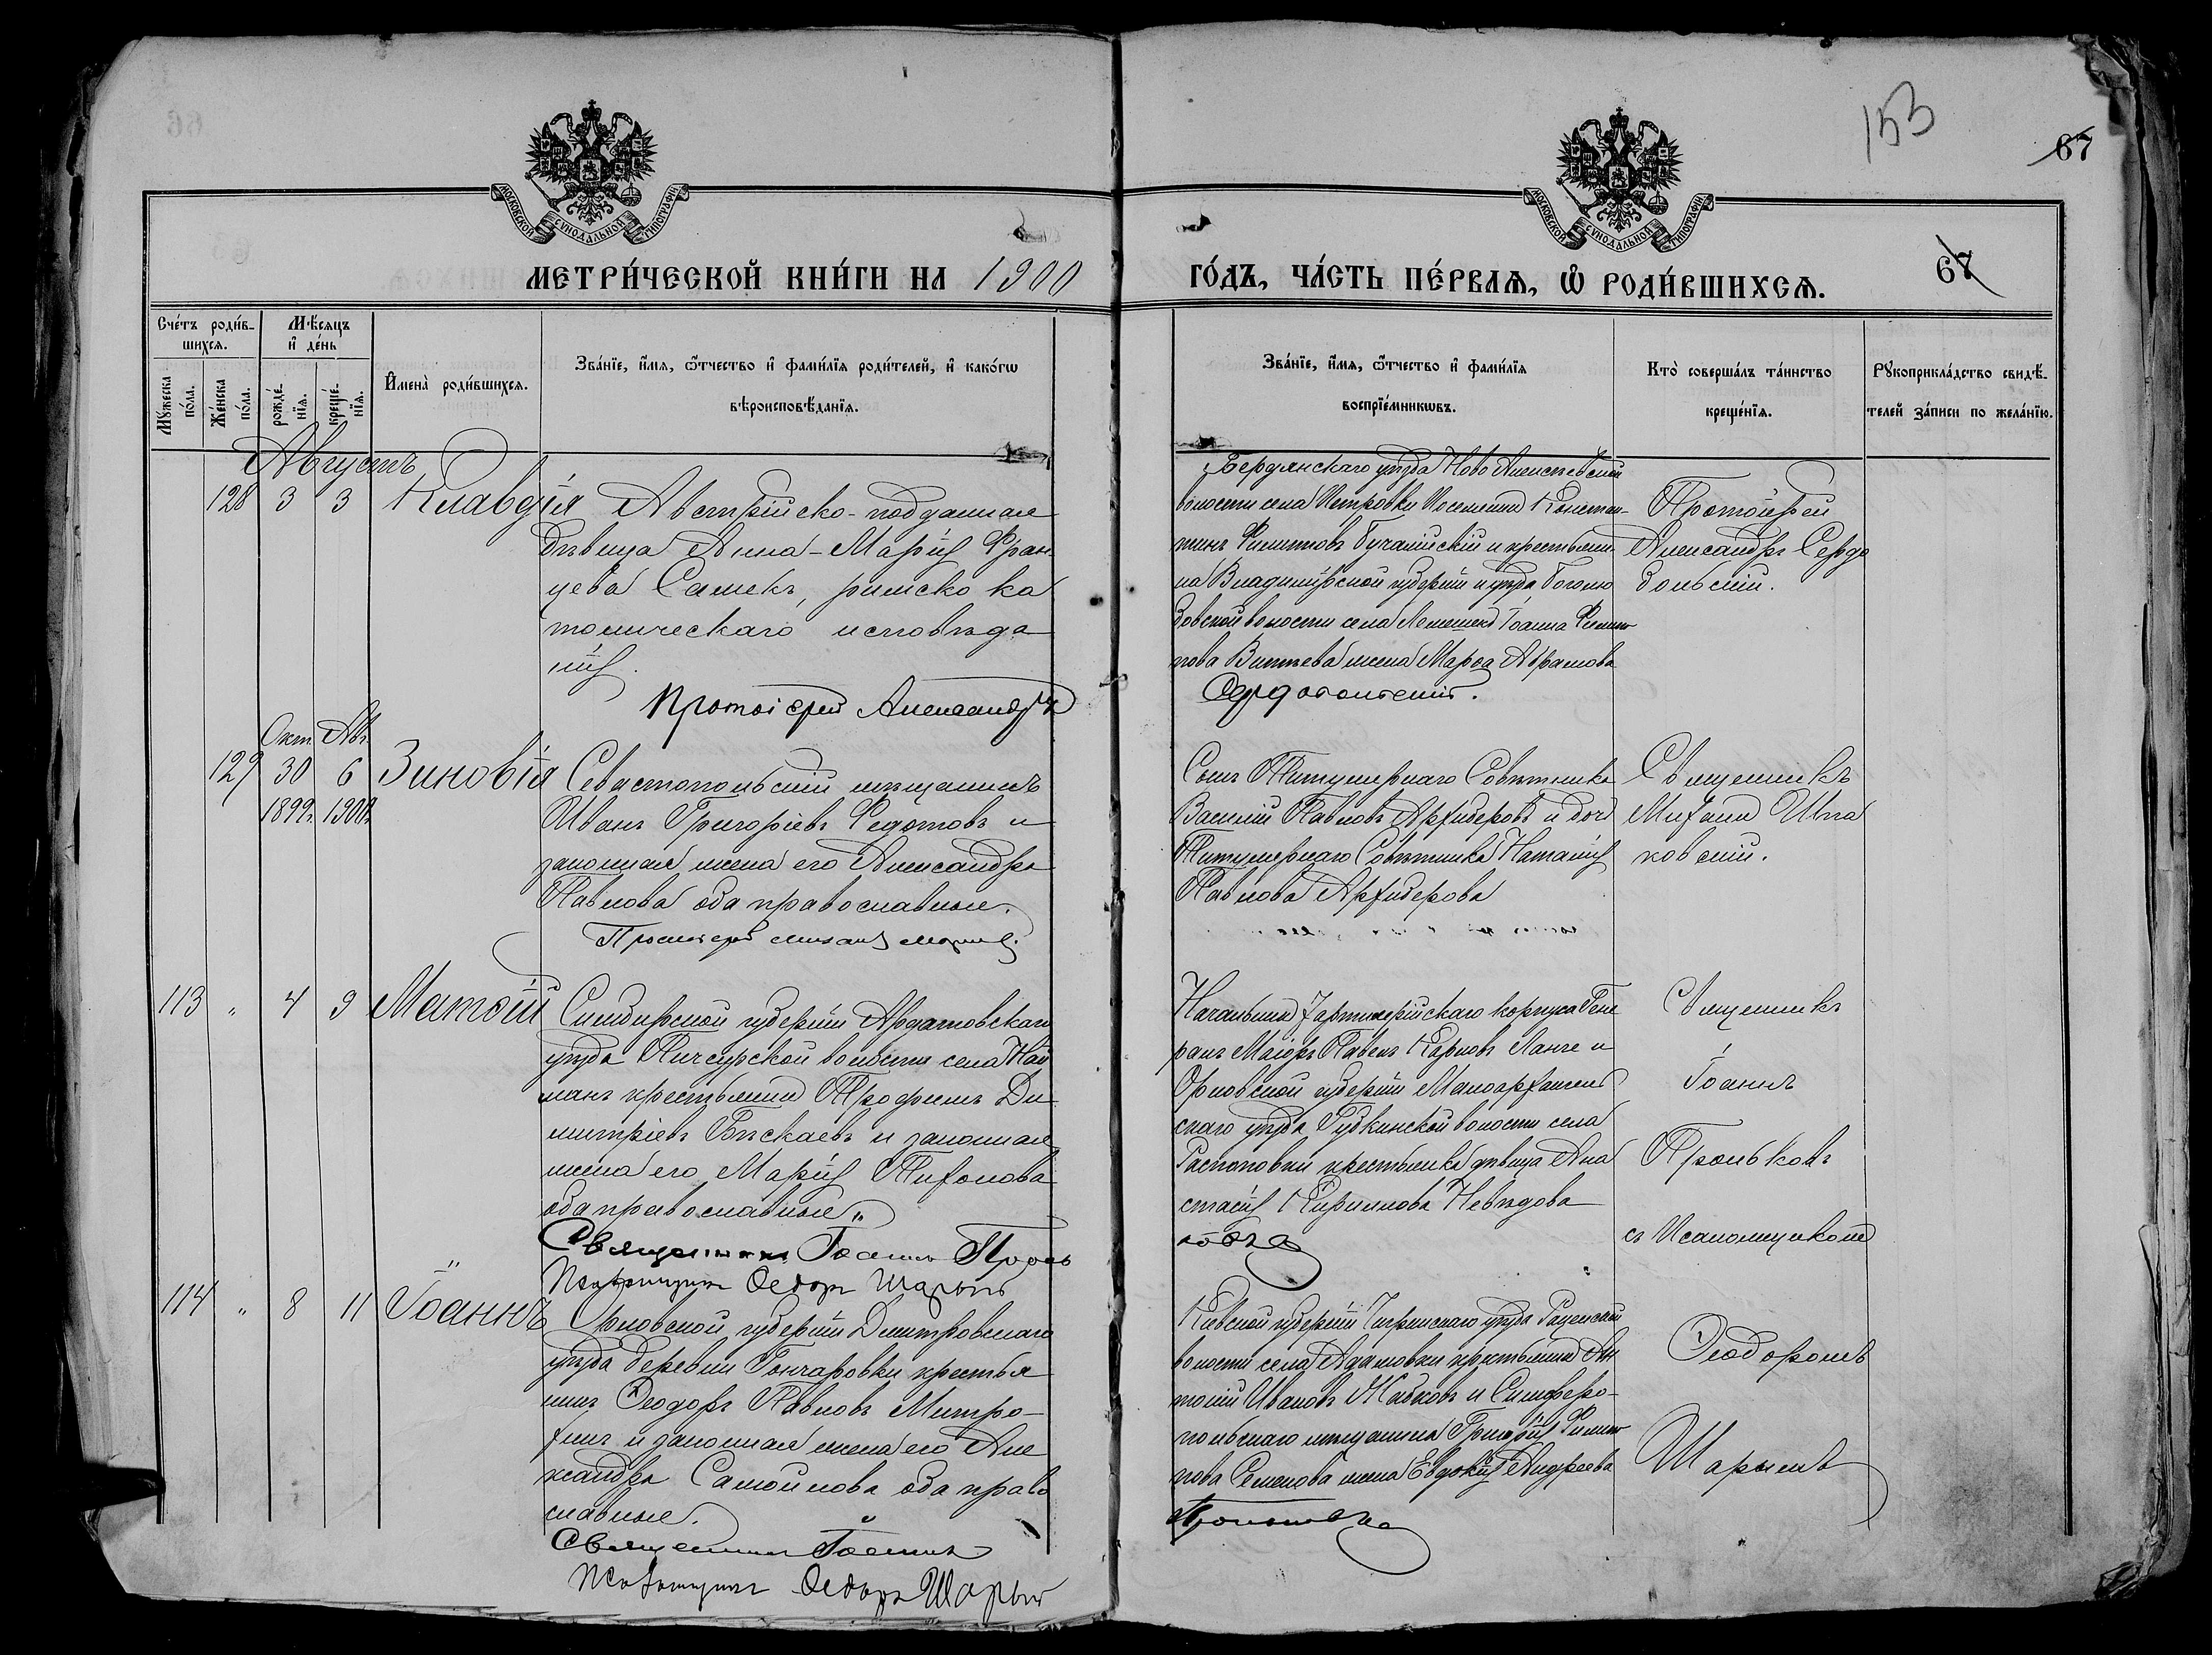 153
67
МОСКОВСКОЙ СѴНОДАЛЬНОЙ ТИПОГРАФІИ
МОСКОВСКОЙ СѴНОДАЛЬНОЙ ТИПОГРАФІИ
МЕТРИ́ЧЕСКОЙ КНИ́ГИ НА 1900
ГО́ДЪ, ЧА́СТЬ ПЕ́РВАѦ, Ѽ РОДИ́ВШИХСѦ.
67
Сче́тъ роди́в-
шихсѧ.
Мꙋ́жеска по́ла.
Же́нска по́ла.
Мѣ́сѧцъ
и҆ де́нь
рожде́-
нїѧ.
креще́-
нїѧ.
И҆мена̀ роди́вшихсѧ.
Зва́нїе, и҆́мѧ, ѻ҆́тчество и҆ фами́лїѧ роди́телей, и҆ како́гѡ
вѣроисповѣ́данїѧ.
Зва́нїе, и҆́мѧ, ѻ҆́тчество и҆ фами́лїѧ
воспрїе́мникѡвъ.
Кто̀ соверша́лъ та́инство
креще́нїѧ.
Рꙋкоприкла́дство свидѣ́-
телей за́писи по жела́нїю.
Августъ
128 3 3 Клавдія
Австрійско-подданная
дѣвица Анна-Марія Фран
цева Самекъ, римско ка
толическаго исповѣда
нія.
Протоіерей Александръ
Бердянскаго уѣзда Ново Алексѣевской
волости села Петровки поселянинъ Констан-
тинъ Филипповъ Бучалійскій и крестьяни
на Владимірской губерніи и уѣзда Бого
волости села Іоанна Филип
пова жена Марѳа Абрамова
Сердобольскій.
Протоіерей
Александръ Сердо
больскій.
Окт. Авг.
129 30 6 Зиновія
1899г. 1900г.
Севастопольскій мѣщанинъ
Иванъ Григоріевъ Федотовъ и
законная жена его Александра
Павлова оба православные.
Протоіерей Михаилъ
Сынъ Титулярнаго Совѣтника
Василій Павловъ и дочь
Титулярнаго Совѣтника Наталія
Павлова
Священникъ
Михаилъ
ковскій.
113 " 4 9 Матѳій
Симбирской губерніи Ардатовскаго
уѣзда волости села Най
манъ крестьянинъ Трофимъ Ди
митріевъ Бѣскаевъ и законная
жена его Марія Тихонова
оба православные"
Священникъ Іоаннъ Проль
Псаломщикъ Ѳедоръ Шарынъ
Начальникъ 7 артиллерійскаго корпуса Гене
ралъ Маіоръ Павелъ Карловъ Ланге и
Орловской губерніи Малоархангель
скаго уѣзда Губкинской волости села
крестьянка дѣвица Ана
стасія Кириллова
ковъ
Священникъ
Іоаннъ
Прольковъ
съ Псаломщикомъ
114 " 8 11 Іоаннъ
Орловской губерніи Дмитровскаго
уѣзда деревни Гончаровки крестья
нинъ Ѳеодоръ Павловъ Митро-
хинъ и законная жена его Але
ксандра Самойлова оба право
славные.
Священникъ Іоаннъ
Псаломщикъ Ѳедоръ Шарынъ
Кіевской губерніи Чигиринскаго уѣзда
волости села Адамовки крестьянинъ Ан
тоній Ивановъ и Симферо-
польскаго мѣщанина Григорія Филип
пова Семенова жена Евдокія Андреева
Прольковъ
Ѳеодоромъ
Шарынъ